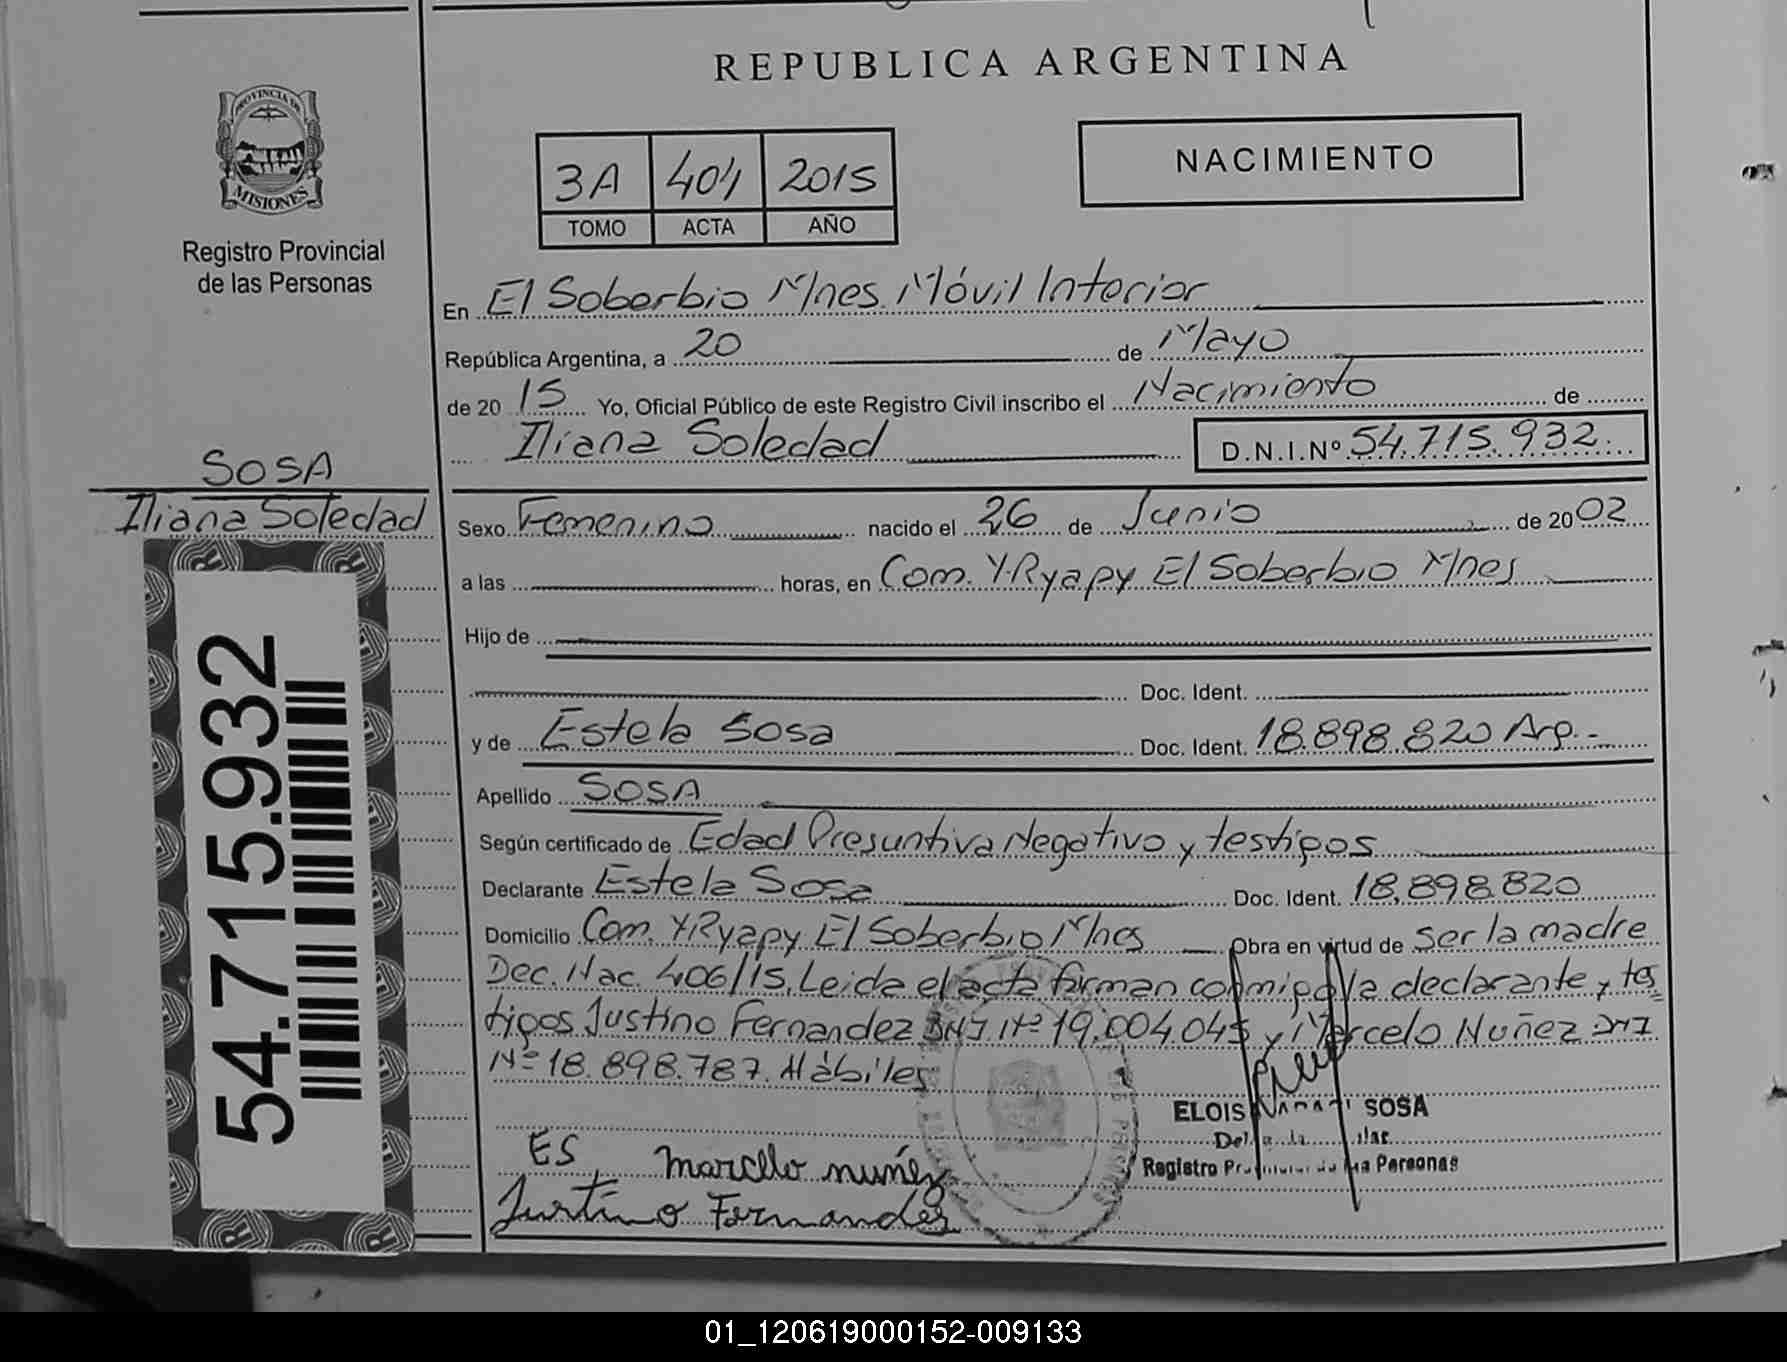 REPUBLICA ARGENTINA
PROVINCIA DE
MISIONES
Registro Provincial
de las Personas
3A 404 2015
TOMO ACTA AÑO
NACIMIENTO
En El Soberbio Mnes. Móvil Interior
República Argentina, a 20 de Mayo
de 20 15 Yo, Oficial Público de este Registro Civil inscribo el Nacimiento de
Iliana Soledad D.N.I.Nº 54.715.932.
SOSA
Iliana Soledad
Sexo Femenino nacido el 26 de Junio de 20 02
a las horas, en Com. Y-Ryapy El Soberbio Mnes
Hijo de
Doc. Ident.
y de Estela Sosa Doc. Ident. 18.898.820 Arg.-
Apellido SOSA
Según certificado de Edad Presuntiva Negativo y testigos
Declarante Estela Sosa Doc. Ident. 18.898.820
Domicilio Com. Y-Ryapy El Soberbio Mnes Obra en virtud de Ser la madre
Dec. Nac. 406/15. Leida el acta firman conmigo la declarante y tes=
tigos Justino Fernandez DNI Nº 19.004.045 y Marcelo Nuñez DNI
Nº 18.898.787. Hábiles
ELOIS SOSA
Registro Provincial de las Personas
ES, marcelo nuñez
Justino Fernandez
54.715.932
01_120619000152-009133